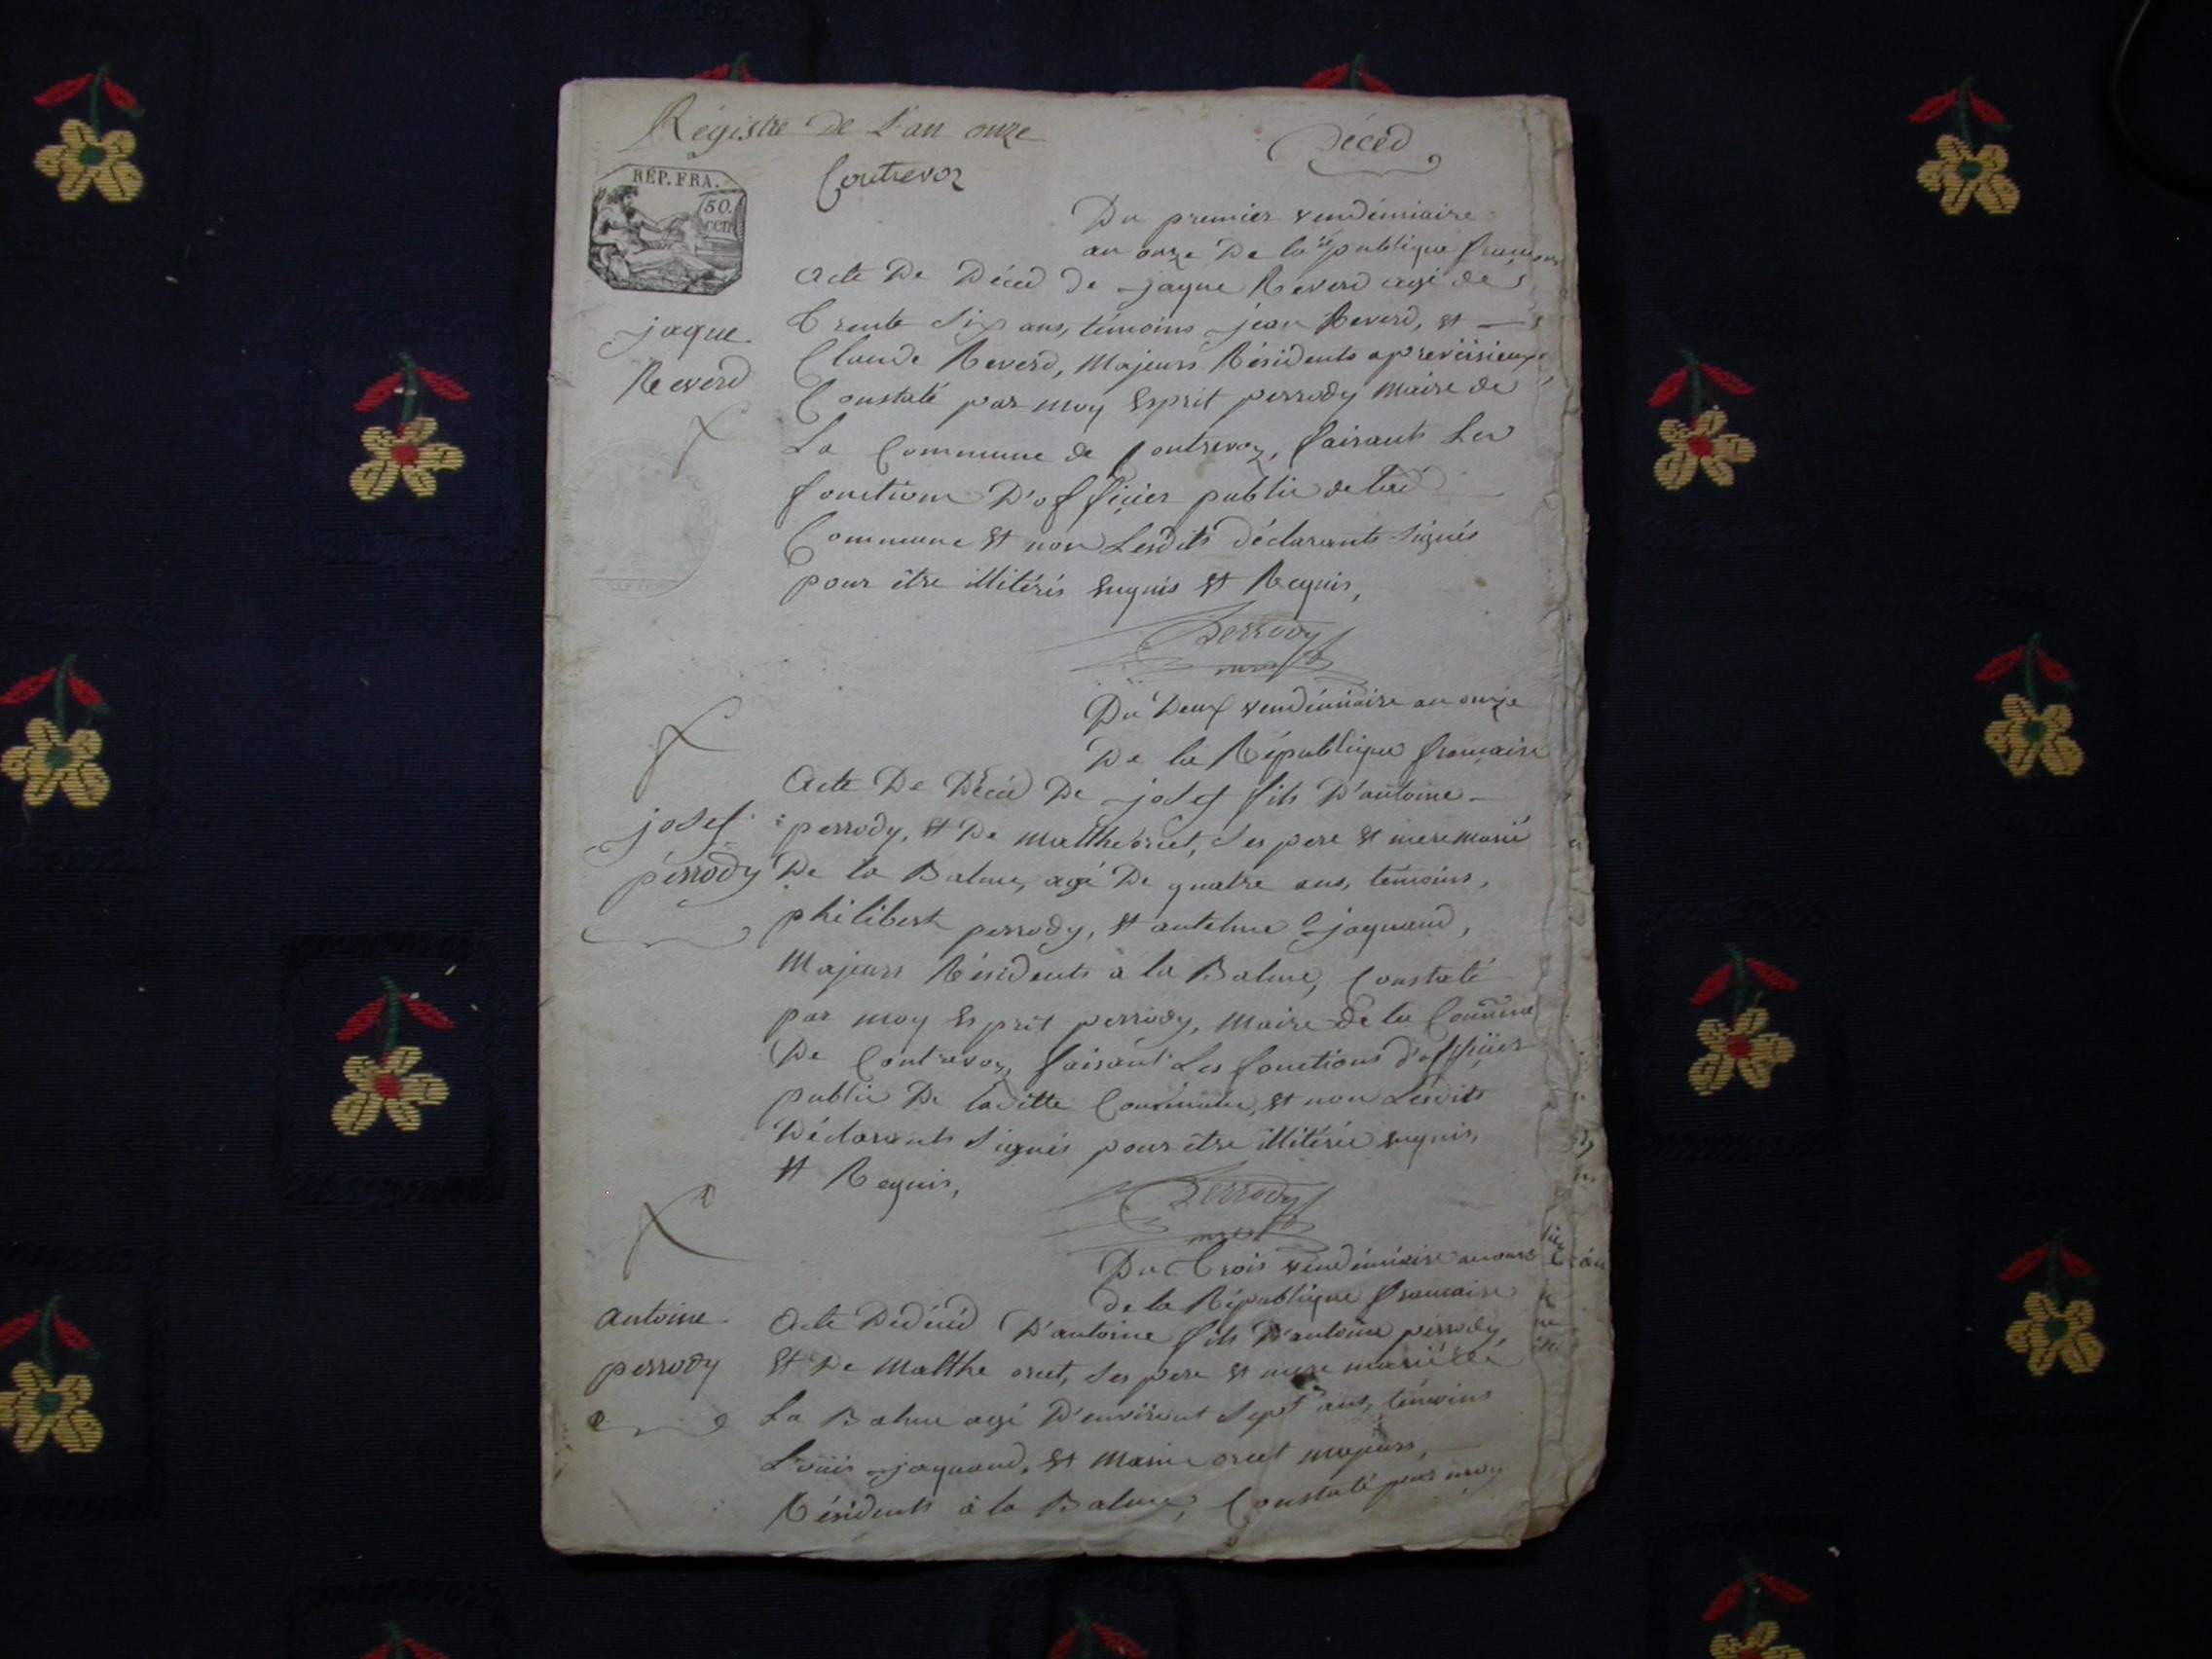 Régistre De L'an onze
Décéd
REP. FRA.
50.
cen
Contrevoz
Du premier vendémiaire
an onze De la république française
Acte De Décéd De jaque Reverd agé de
jaque
Reverd
trente Six ans, témoins jean Reverd, et
Claude Reverd, Majeurs Résidents a preveisieux
Constaté par moy Esprit perrody Maire de
La Commune de Contrevoz, faisants Les
fonctions D'officier public de lad
Commune et non Lesdits déclarants Signés
pour être illitérés Enquis et Requis,
Perrody
Du Deux vendémiaire an onze
De la République francaise
Acte De Décéd De josef fils D'antoine
josef
perrody
perrody, et De Matthe oret, Ses pere et mere marié
De la Balme, agé De quatre ans, témoins,
philibert perrody, et antelme jaquand,
Majeurs Résidents à la Balme, Constaté
par moy Esprit perrody, Maire de la Commune
De Contrevoz, faisant Les fonctions d'officier
public De laditte Commune, et non Lesdits
Déclarants Signés pour être illitérés enquis,
et Requis,
Perrody
Du Trois vendémiaire an onze
de la République francaise
antoine
perrody
Acte De décéd D'antoine fils D'antoine perrody,
et De Matthe oret, Ses pere et mere mariés de
La Balme agé D'environt Sept ans, témoins
Loüis jaquand, et Marie oret majeurs,
Résidents à la Balme, Constaté par moy